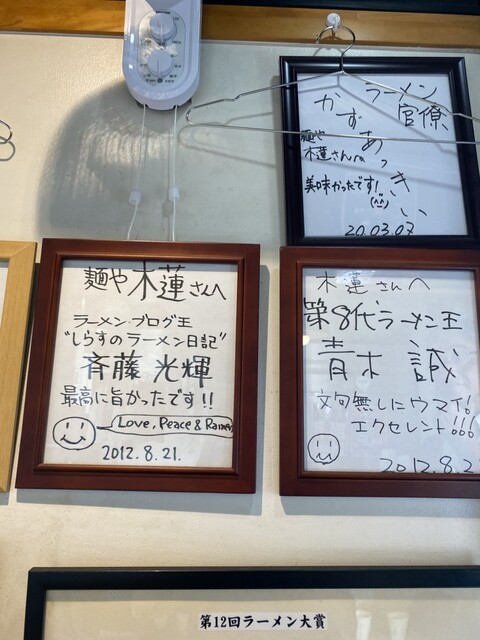 ラーメン
官僚
かずあっきぃ
麺や
木蓮さんへ
美味かったです!
(^^)
20.03.07
麺や 木蓮さんへ
ラーメン・ブログ王
"しらすのラーメン日記"
斉藤 光輝
最高に旨かったです!!
Love, Peace & Ramen
2012.8.21.
木蓮さんへ
第8代ラーメン王
青木 誠
文句無しにウマイ!
エクセレント!!!
2012.8.2
第12回ラーメン大賞